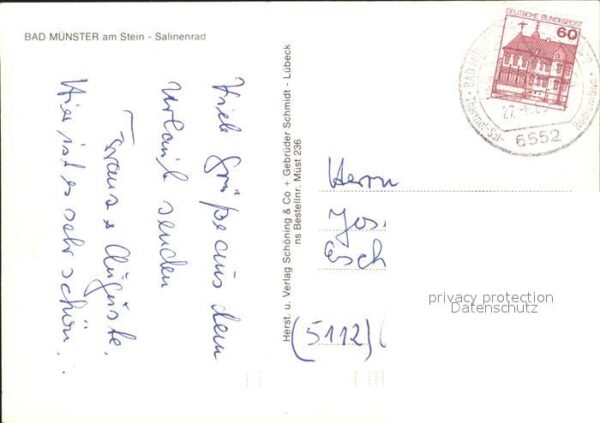 BAD MÜNSTER am Stein - Salinenrad
Viele Grüße aus dem
Urlaub senden
Franz & Auguste.
Hier ist es sehr schön.
Herst. u. Verlag Schöning & Co + Gebrüder Schmidt - Lübeck
ns Bestellnr. Müst 236
DEUTSCHE BUNDESPOST
60
6552
Herrn
Jos.
(5112)
privacy protection
Datenschutz